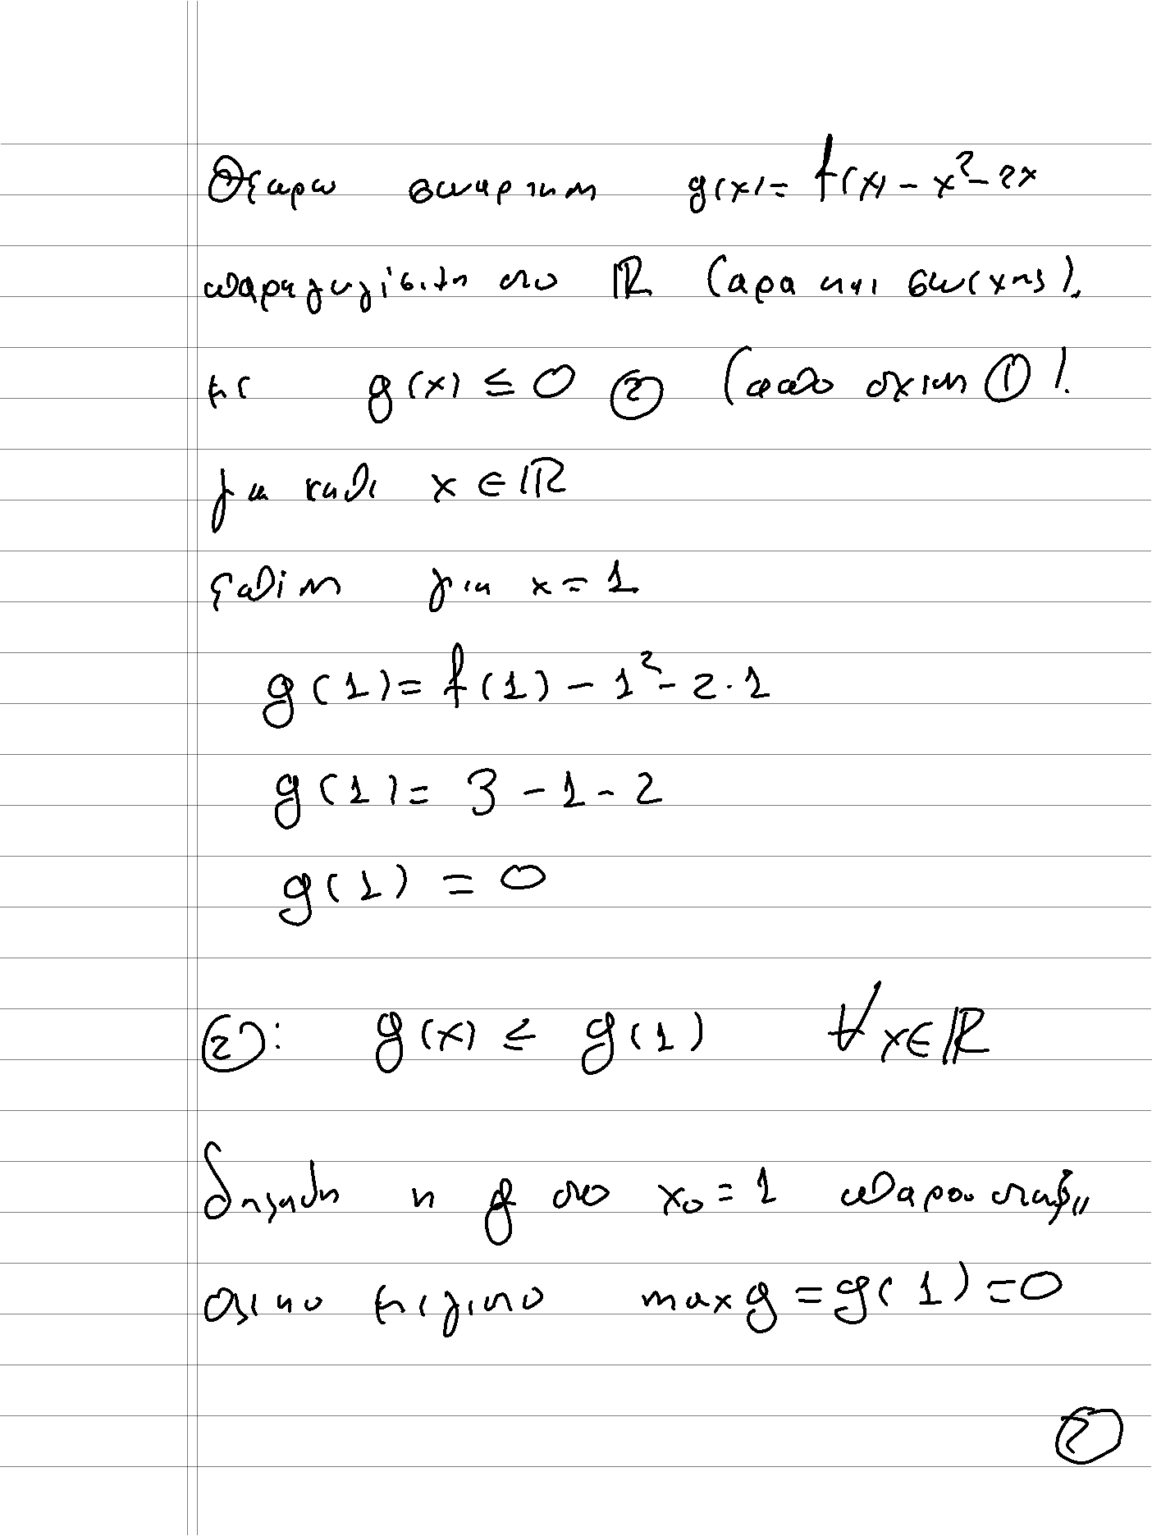 Θεωρω συναρτηση g(x) = f(x) - x² - 2x
παραγωγίσιμη στο ℝ (αρα και συνεχης).
με g(x) ≤ 0 ② (απο σχεση ①).
για καθε x ∈ ℝ
επίσης για x = 1
g(1) = f(1) - 1² - 2·1
g(1) = 3 - 1 - 2
g(1) = 0
②: g(x) ≤ g(1) ∀ x∈ℝ
δηλαδη η g στο x₀ = 1 παρουσιαζει
ολικο μεγιστο max g = g(1) = 0
②